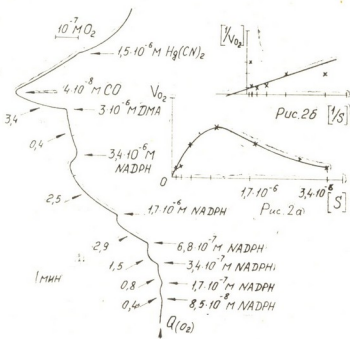 10⁻⁷M O₂
1,5·10⁻⁶M Hg(CN)₂
4·10⁻⁸M CO
3·10⁻⁶M DMA
3,4
0,4
3,4·10⁻⁶M
NADPH
2,5
1,7·10⁻⁶M NADPH
2,9
6,8·10⁻⁷M NADPH
1,5
3,4·10⁻⁷M NADPH
0,8
1,7·10⁻⁷M NADPH
8,5·10⁻⁸M
NADPH
1мин
Q(O₂)
[1/V O₂]
Рис.2б [1/S]
V O₂
0
1,7·10⁻⁶
3,4·10⁻⁶
[S]
Рис.2а